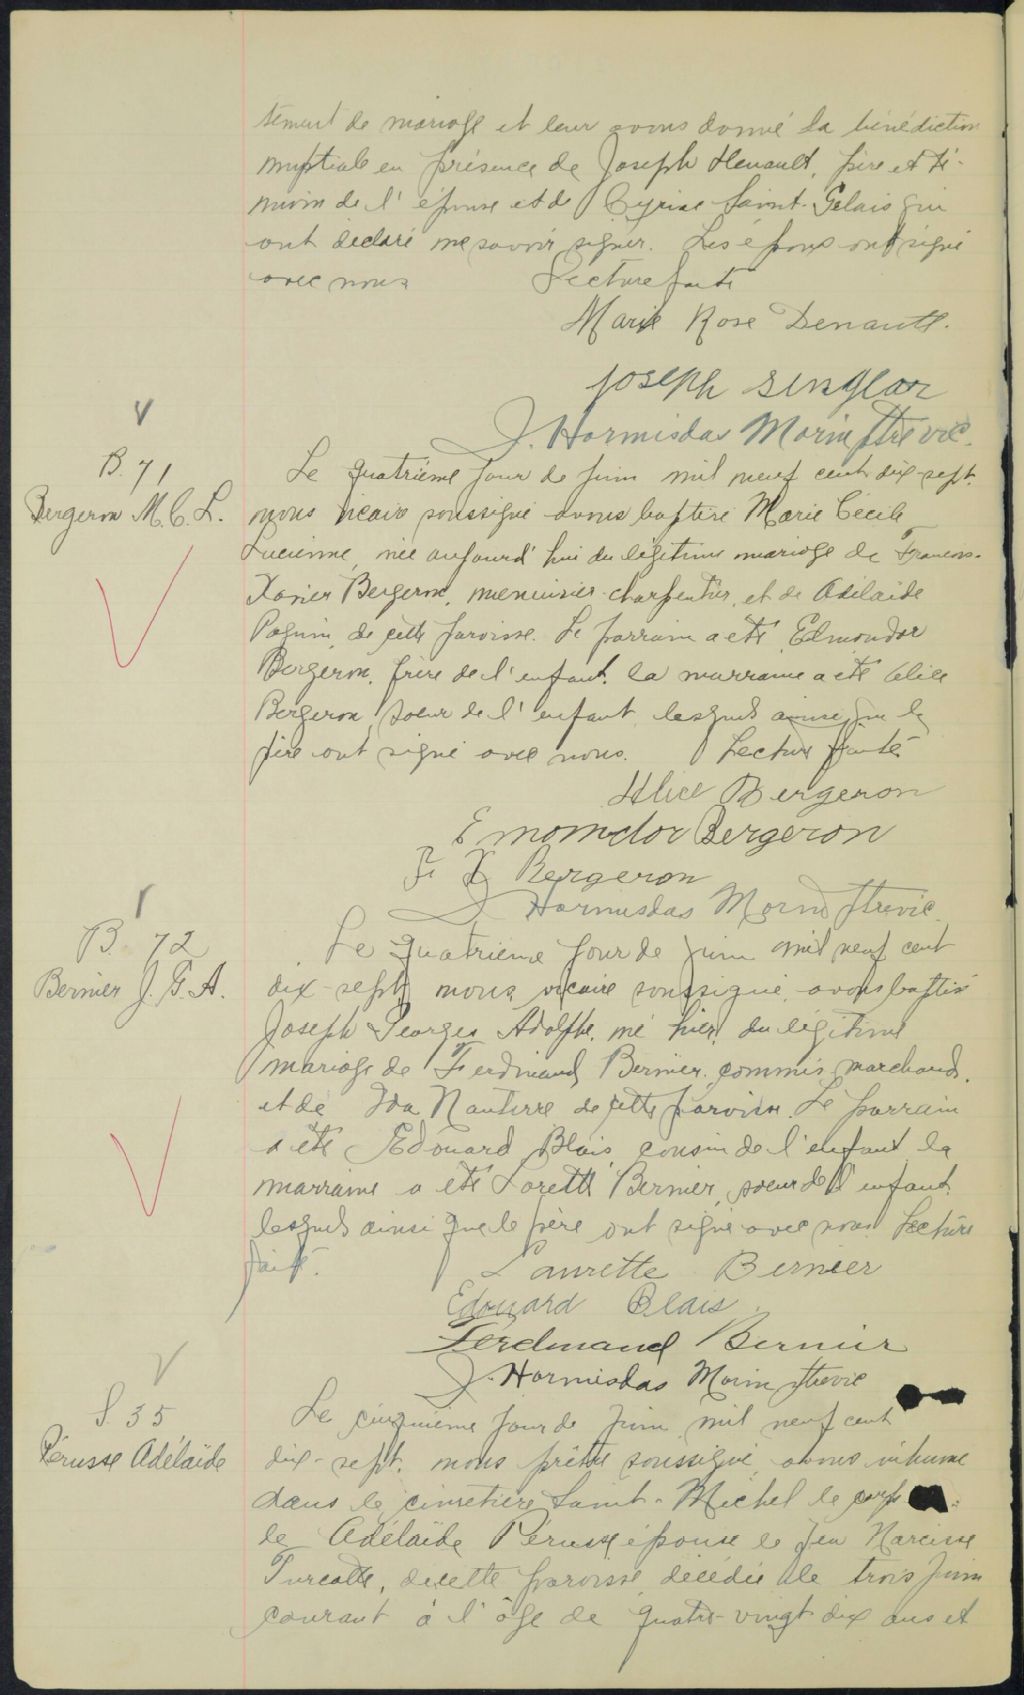 tement de mariage et leur avons donné la bénédiction
nuptiale en présence de Joseph Henault, père et té-
moin de l'épouse et de Cyriac Saint-Gelais qui
ont déclaré ne savoir signer. Les époux ont signé
avec nous Lecture faite
Marie Rose Denault.
Joseph Senglar
J. Hormisdas Morin ptre vic.
V
B. 71
Bergeron M. C. L.
Le quatrième jour de juin mil neuf cent dix-sept.
nous vicaire soussigné avons baptisé Marie Cécile
Lucienne, née aujourd'hui du légitime mariage de Francois-
Xavier Bergeron, menuisier-charpentier, et de Adélaide
Paquin, de cette paroisse. Le parrain a été Elmondor
Bergeron, frère de l'enfant, la marraine a été Alice
Bergeron soeur de l'enfant, lesquels ainsi que le
père ont signé avec nous. Lecture faite
Alice Bergeron
Emomdor Bergeron
F. X Bergeron
J. Hormisdas Morin ptre vic.
B. 72
Bernier J. G. A.
Le quatrième jour de juin mil neuf cent
dix-sept, nous vicaire soussigné, avons baptisé
Joseph Georges Adolphe, né hier du légitime
mariage de Ferdinand Bernier, commis marchand,
et de Ida Nanterre de cette paroisse. Le parrain
a été Edouard Blais, cousin de l'enfant, la
marraine a été Lorette Bernier, soeur de l'enfant,
lesquels ainsi que le père ont signé avec nous. Lecture
faite.
Laurette Bernier
Edouard Blais.
Ferdinand Bernier
J. Hormisdas Morin ptre vic
V
S. 35
Pérusse Adélaïde
Le cinquième jour de juin mil neuf cent
dix-sept, nous prêtre soussigné, avons inhumé
dans le cimetière Saint-Michel le corps
de Adélaïde Pérusse, épouse de feu Narcisse
Turcotte, de cette paroisse, décédée le trois juin
courant à l'âge de quatre-vingt dix ans et